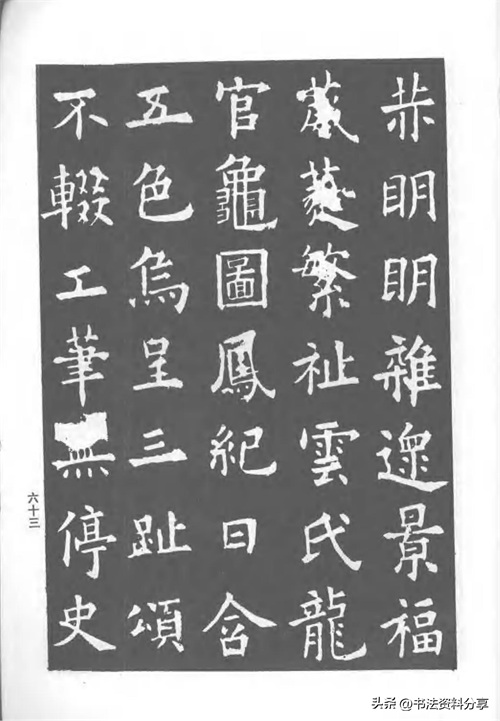 赫明明雜遝景福
葳蕤繁祉雲氏龍
官龜圖鳳紀日含
五色烏呈三趾頌
不輟工筆無停史
六十三
头条 @书法资料分享